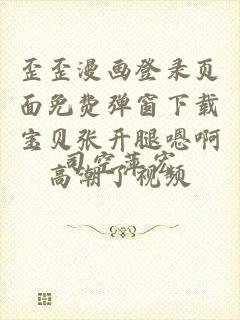 歪歪漫画登录页
面免费弹窗下载
宝贝张开腿嗯啊
司空萍宏
高潮了视频